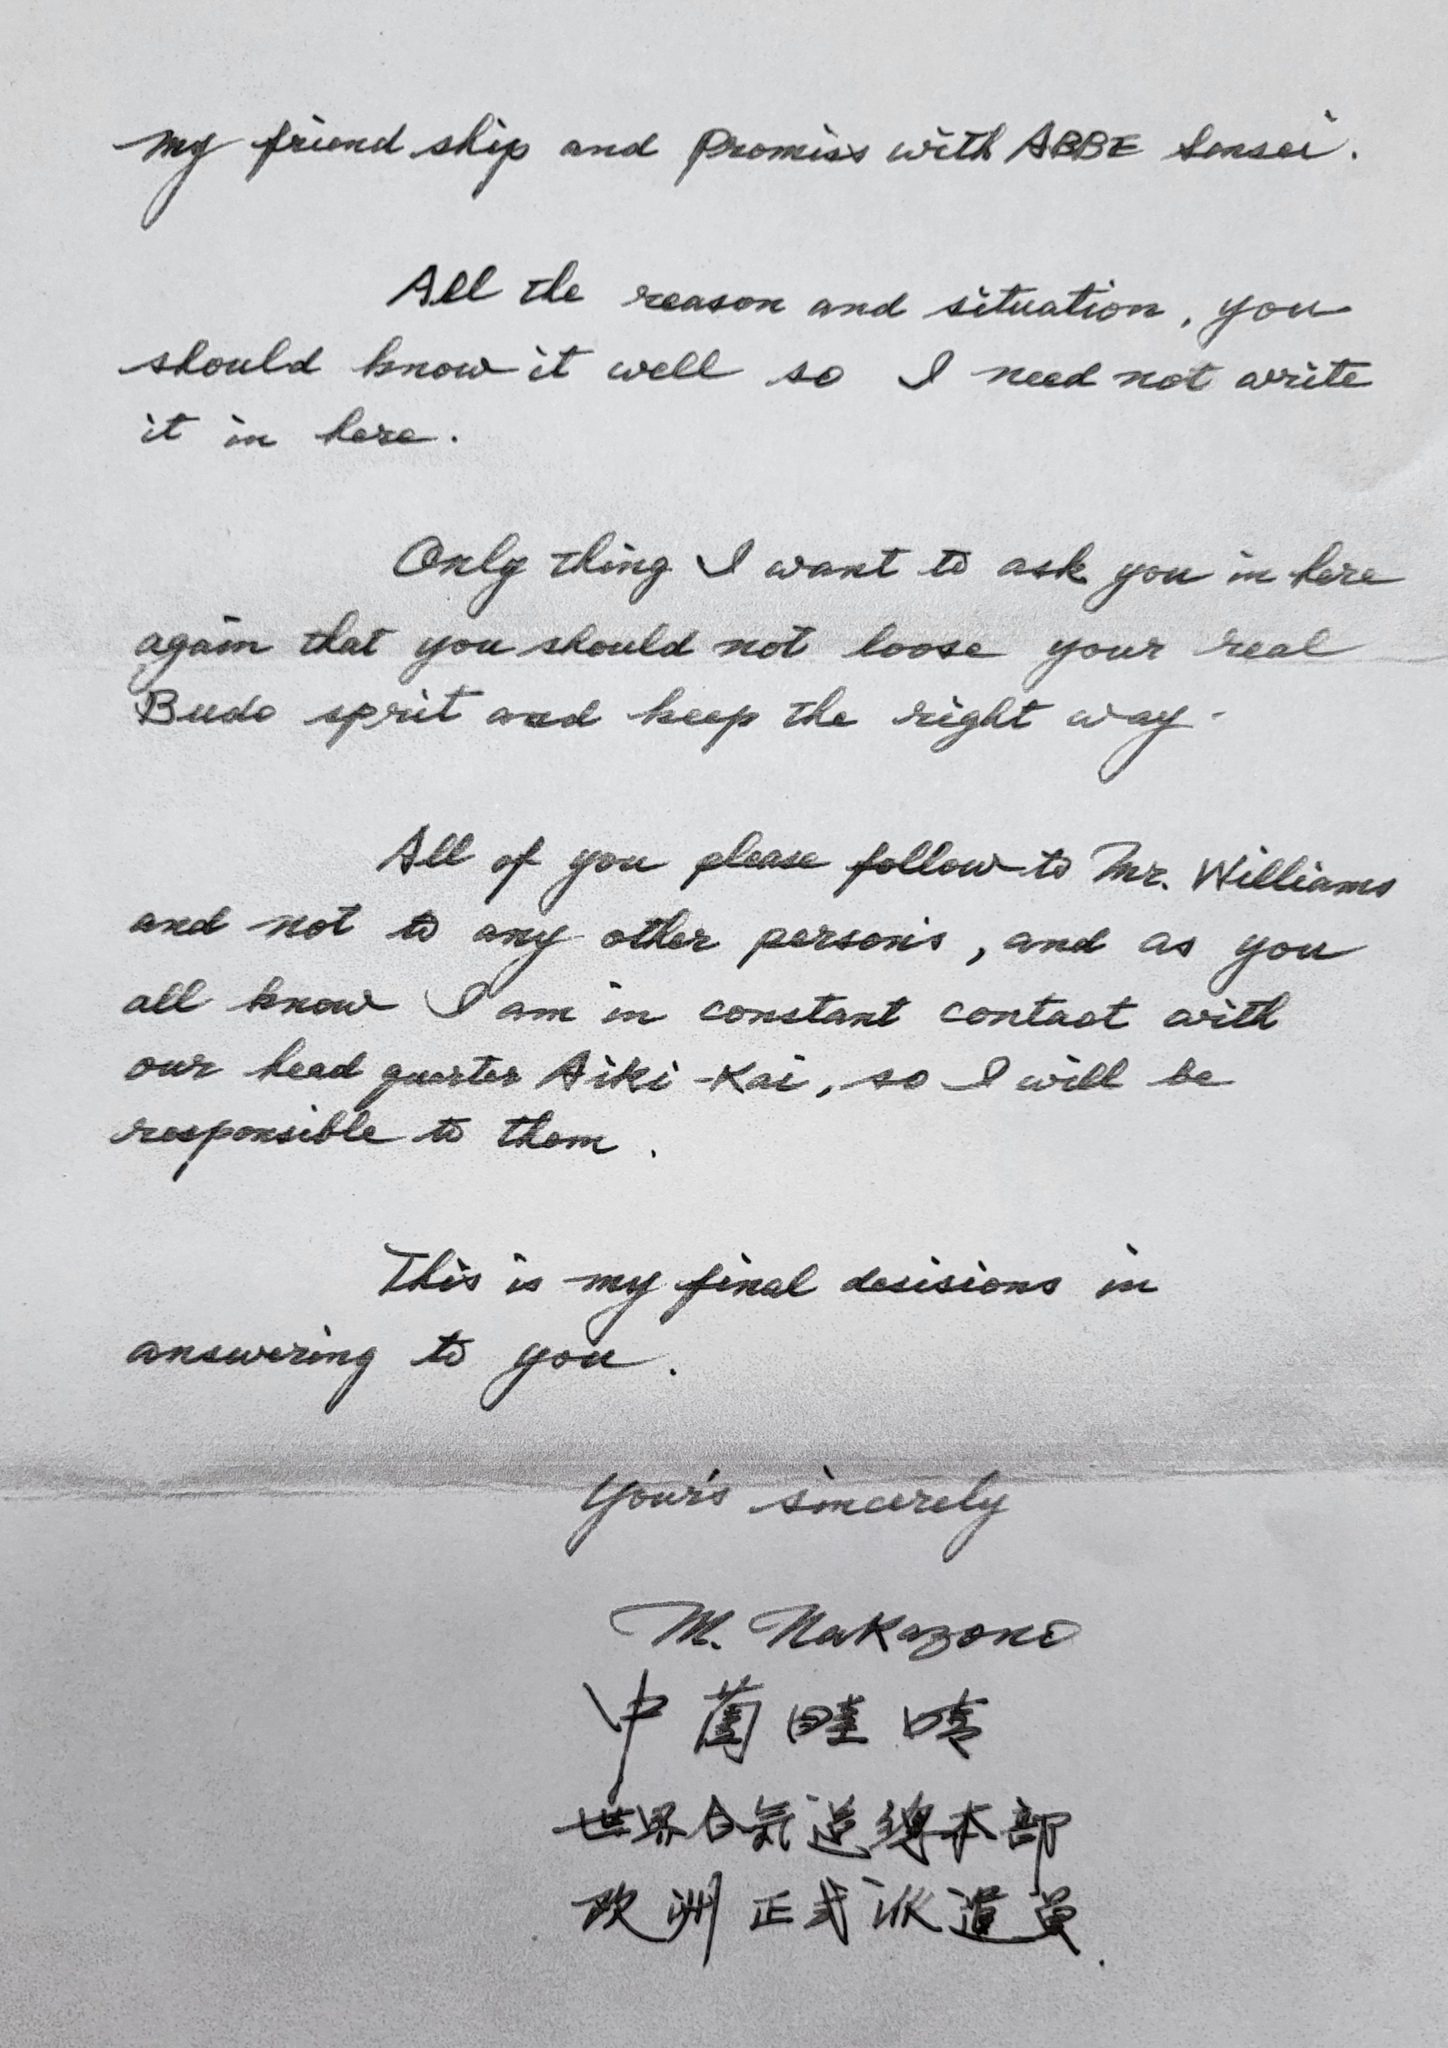 my friend ship and Promiss with ABBE Sensei.
All the reason and situation, you
should know it well so I need not write
it in here.
Only thing I want to ask you in here
again that you should not loose your real
Budo sprit and keep the right way.
All of you please follow to Mr. Williams
and not to any other person's, and as you
all know I am in constant contact with
our head quarter Aiki-Kai, so I will be
responsible to them.
This is my final desisions in
answering to you.
Your's sincerely
M. Nakazono
中薗畦
世界合気道総本部
欧洲正式派遣員.